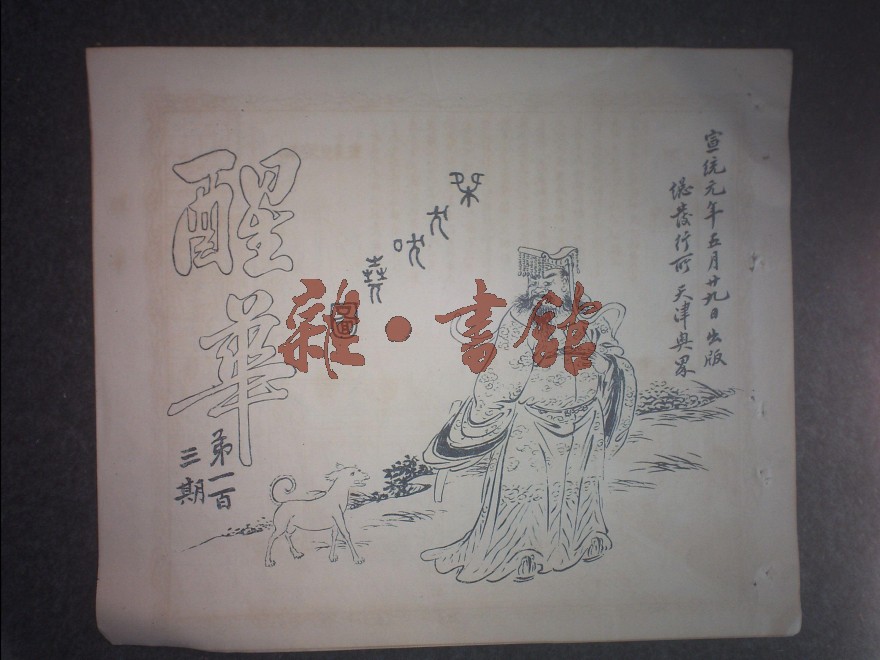 宣統元年五月廿九日出版
總發行所天津奧界
桀犬吠堯圖
醒華
第一百
三期
雜·書館